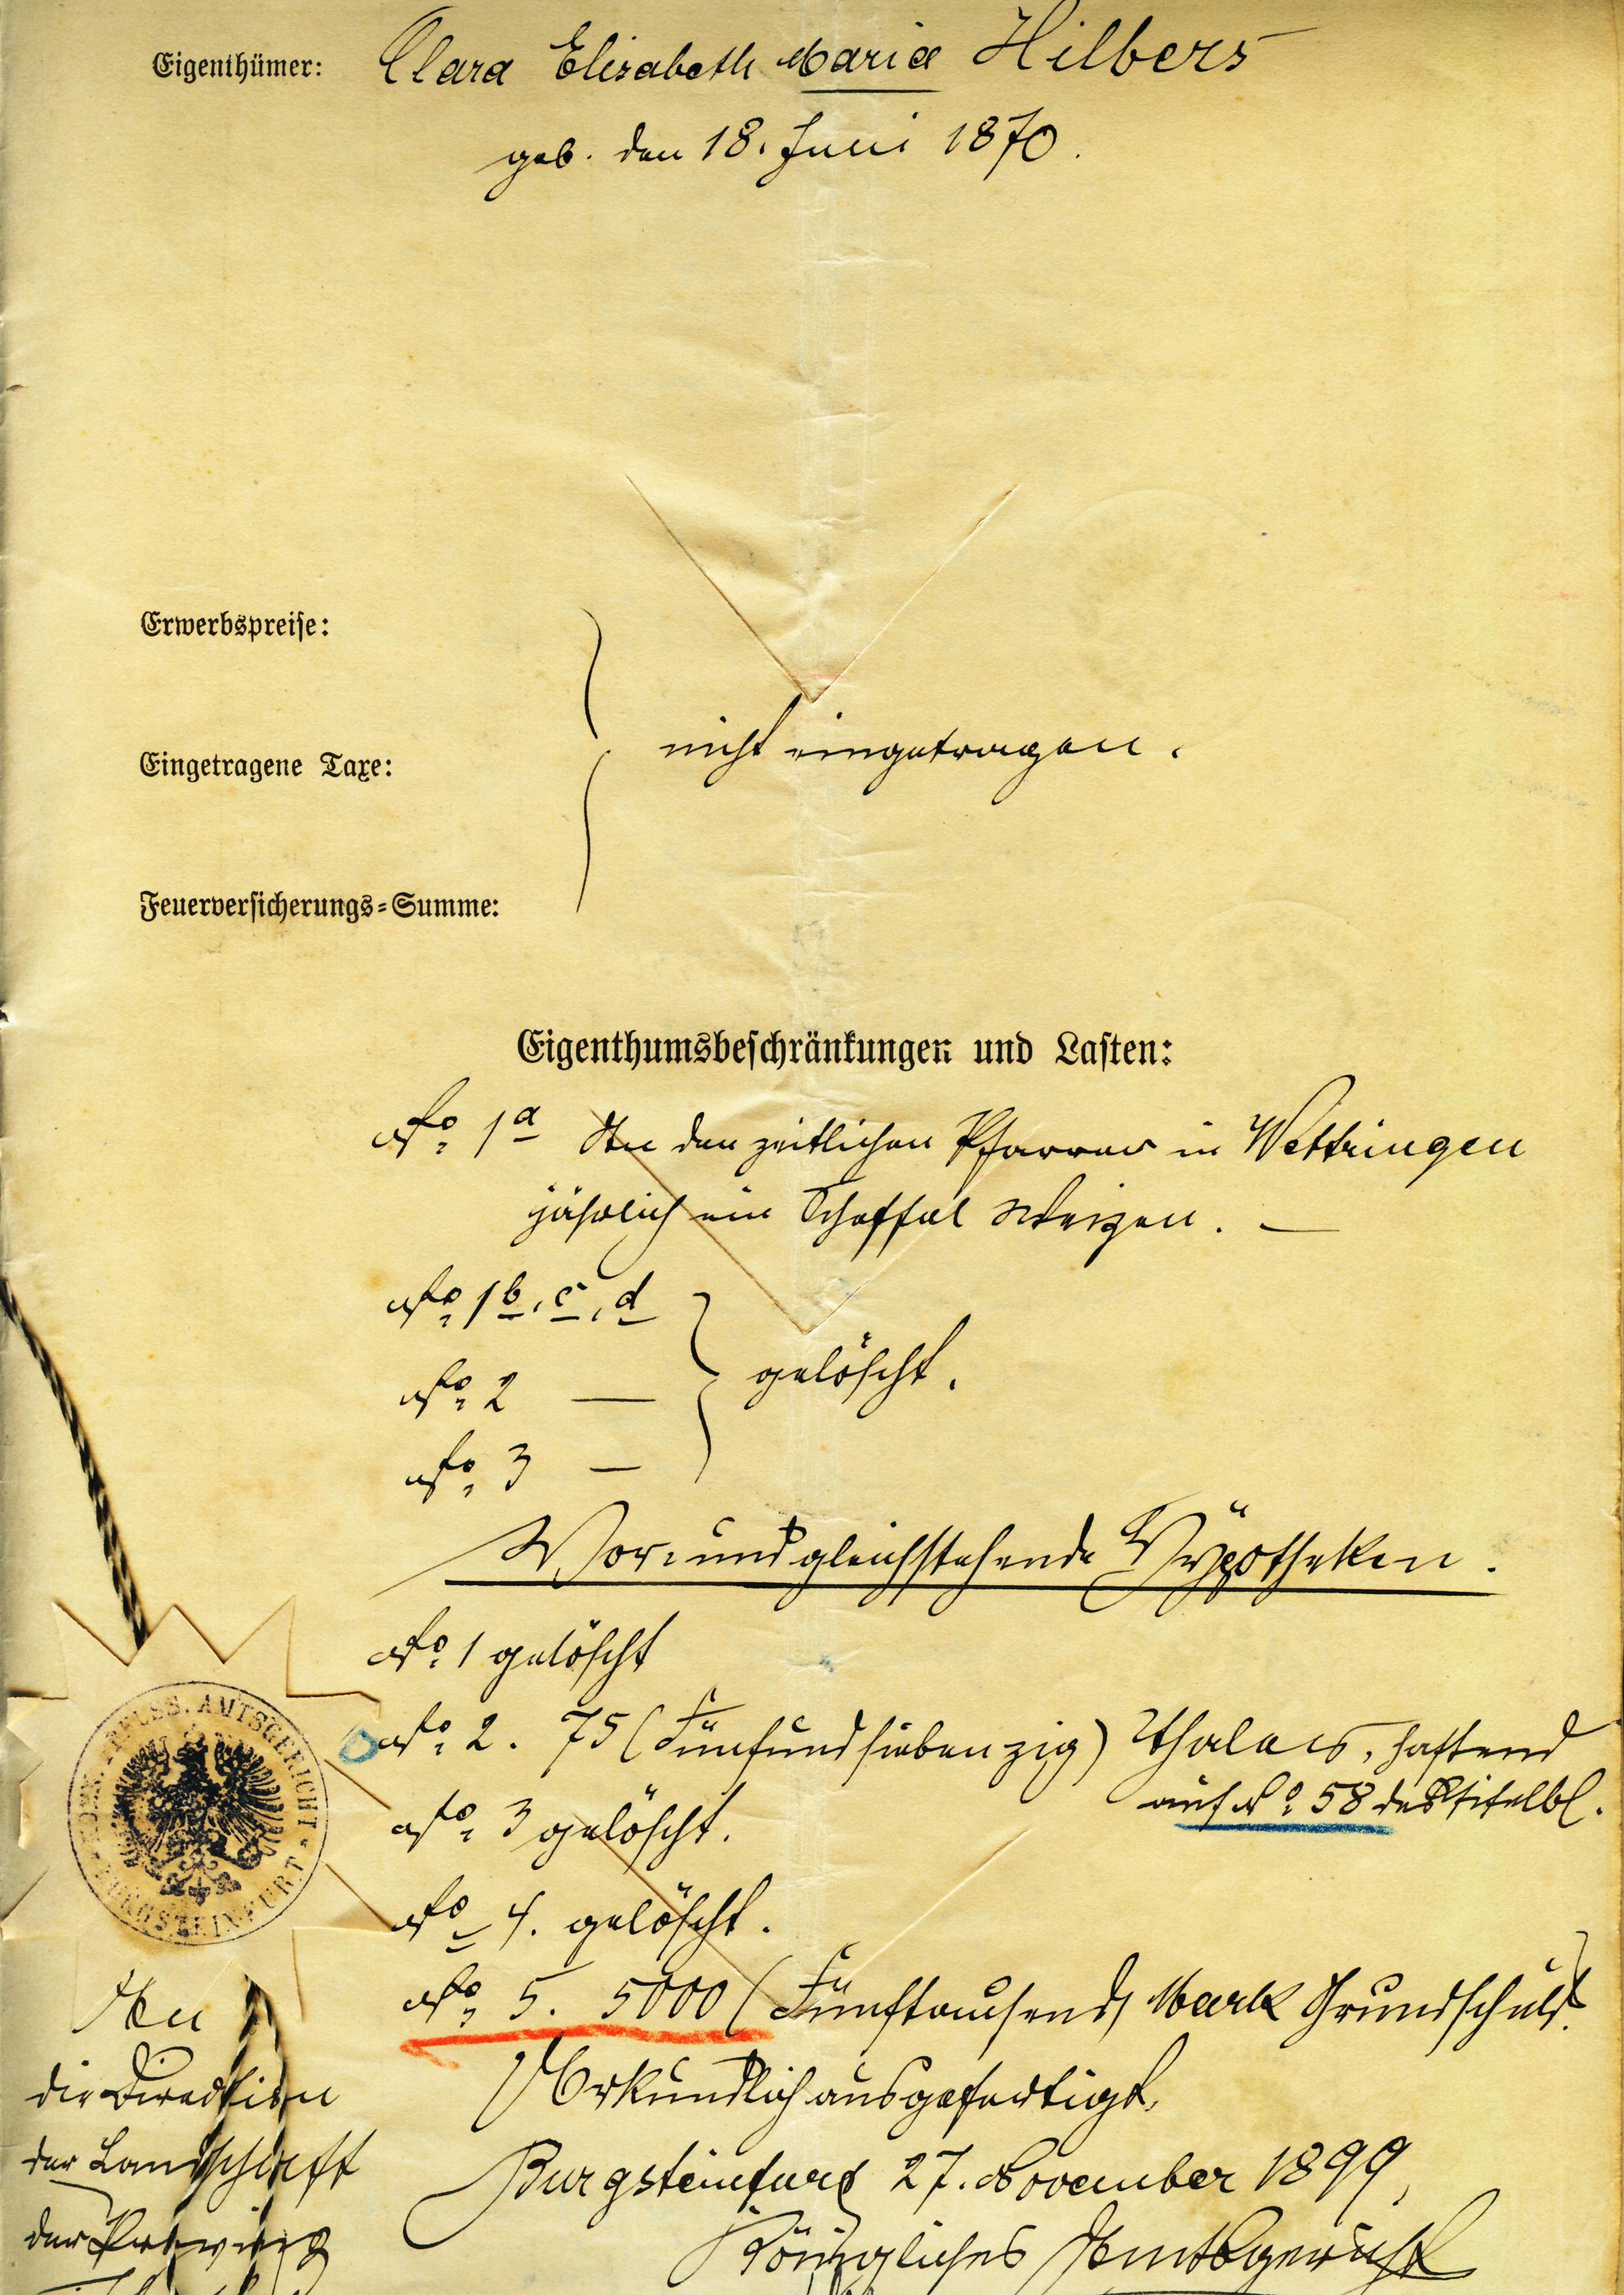 Eigenthümer: Clara Elisabeth Maria Hilbers
geb. den 18. Juni 1870.
Erwerbspreise:
nicht eingetragen.
Eingetragene Taxe:
Feuerversicherungs-Summe:
Eigenthumsbeschränkungen und Lasten:
No. 1a An den zeitlichen Pfarrer in Wettringen
jährlich ein Scheffel Weizen. —
No. 1b, c, d
gelöscht.
No. 2 —
No. 3 —
Vor- und gleichstehende Hypotheken.
No. 1 gelöscht
No. 2. 75 (Fünfundsiebenzig) Thaler, haftend
auf No. 58 des Titelbl.
No. 3 gelöscht.
No. 4. gelöscht.
No. 5. 5000 (Fünftausend) Mark Grundschuld.
Urkundlich ausgefertigt,
Burgsteinfurt 27. November 1899,
Königliches Amtsgericht
KÖN. PREUSS. AMTSGERICHT BURGSTEINFURT
An
die Direction
der Landschaft
der Provinz